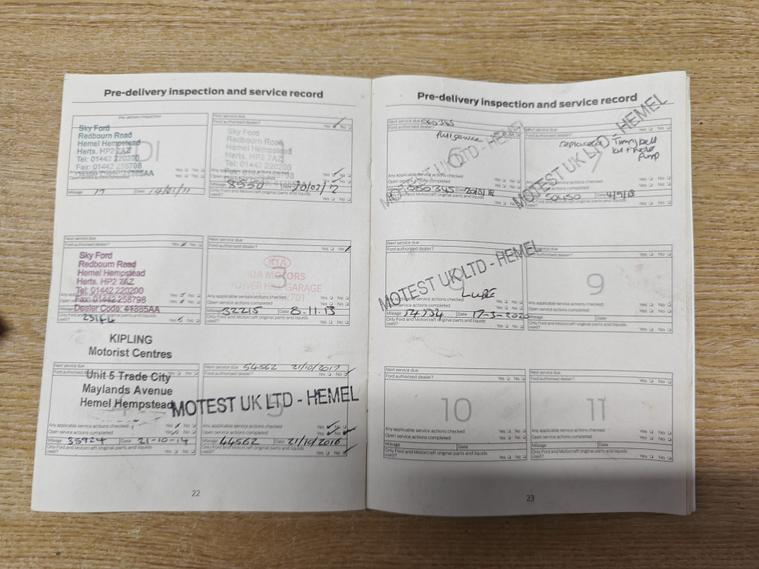 Pre-delivery inspection and service record
Pre-delivery inspection
Sky Ford
Redbourn Road
Hemel Hempstead
Herts. HP2 7AZ
Tel: 01442 220200
Fax: 01442 258798
Mileage 17 Date
Next service due
Ford authorised dealer? Yes No
Sky Ford
Redbourn Road
Hemel Hempstead
Herts. HP2 7AZ
Tel: 01442 220200
Fax: 01442 258798
8550
Next service due
Ford authorised dealer? Yes No
Sky Ford
Redbourn Road
Hemel Hempstead
Herts. HP2 7AZ
Tel: 01442 220200
Fax: 01442 258798
Next service due
Ford authorised dealer? Yes No
KIA
KIA MOTORS
GARAGE
3
Any applicable service actions checked Yes No
Open service actions completed Yes No
Mileage 32215 Date 8.11.13
Only Ford and Motorcraft original parts and liquids used? Yes No
KIPLING
Motorist Centres
Unit 5 Trade City
Maylands Avenue
Hemel Hempstead
Any applicable service actions checked Yes No
Open service actions completed Yes No
Mileage 35924 Date 21-10-14
Only Ford and Motorcraft original parts and liquids
used? Yes No
Next service due 54562 21/10/2017
Ford authorised dealer? Yes No
MOTEST UK LTD - HEMEL
Any applicable service actions checked Yes No
Open service actions completed Yes No
Mileage 44562 Date 21/10/2016
Only Ford and Motorcraft original parts and liquids
used? Yes No
22
Pre-delivery inspection and service record
Next service due
Ford authorised dealer?
full service
MOTEST UK LTD - HEMEL
Only Ford and Motorcraft original parts and liquids
used? Yes No
replaced Timing belt
kit + water
pump
MOTEST UK LTD - HEMEL
50450 4/9/18
Only Ford and Motorcraft original parts and liquids
used? Yes No
Next service due
Ford authorised dealer?
MOTEST UK LTD - HEMEL
Mileage Date 17-3-2020
Only Ford and Motorcraft original parts and liquids
used? Yes No
Next service due
Ford authorised dealer? Yes No
9
Any applicable service actions checked Yes No
Open service actions completed Yes No
Mileage Date
Only Ford and Motorcraft original parts and liquids
used? Yes No
Next service due
Ford authorised dealer? Yes No
10
Any applicable service actions checked Yes No
Open service actions completed Yes No
Mileage Date
Only Ford and Motorcraft original parts and liquids
used? Yes No
Next service due
Ford authorised dealer? Yes No
11
Any applicable service actions checked Yes No
Open service actions completed Yes No
Mileage Date
Only Ford and Motorcraft original parts and liquids
used? Yes No
23